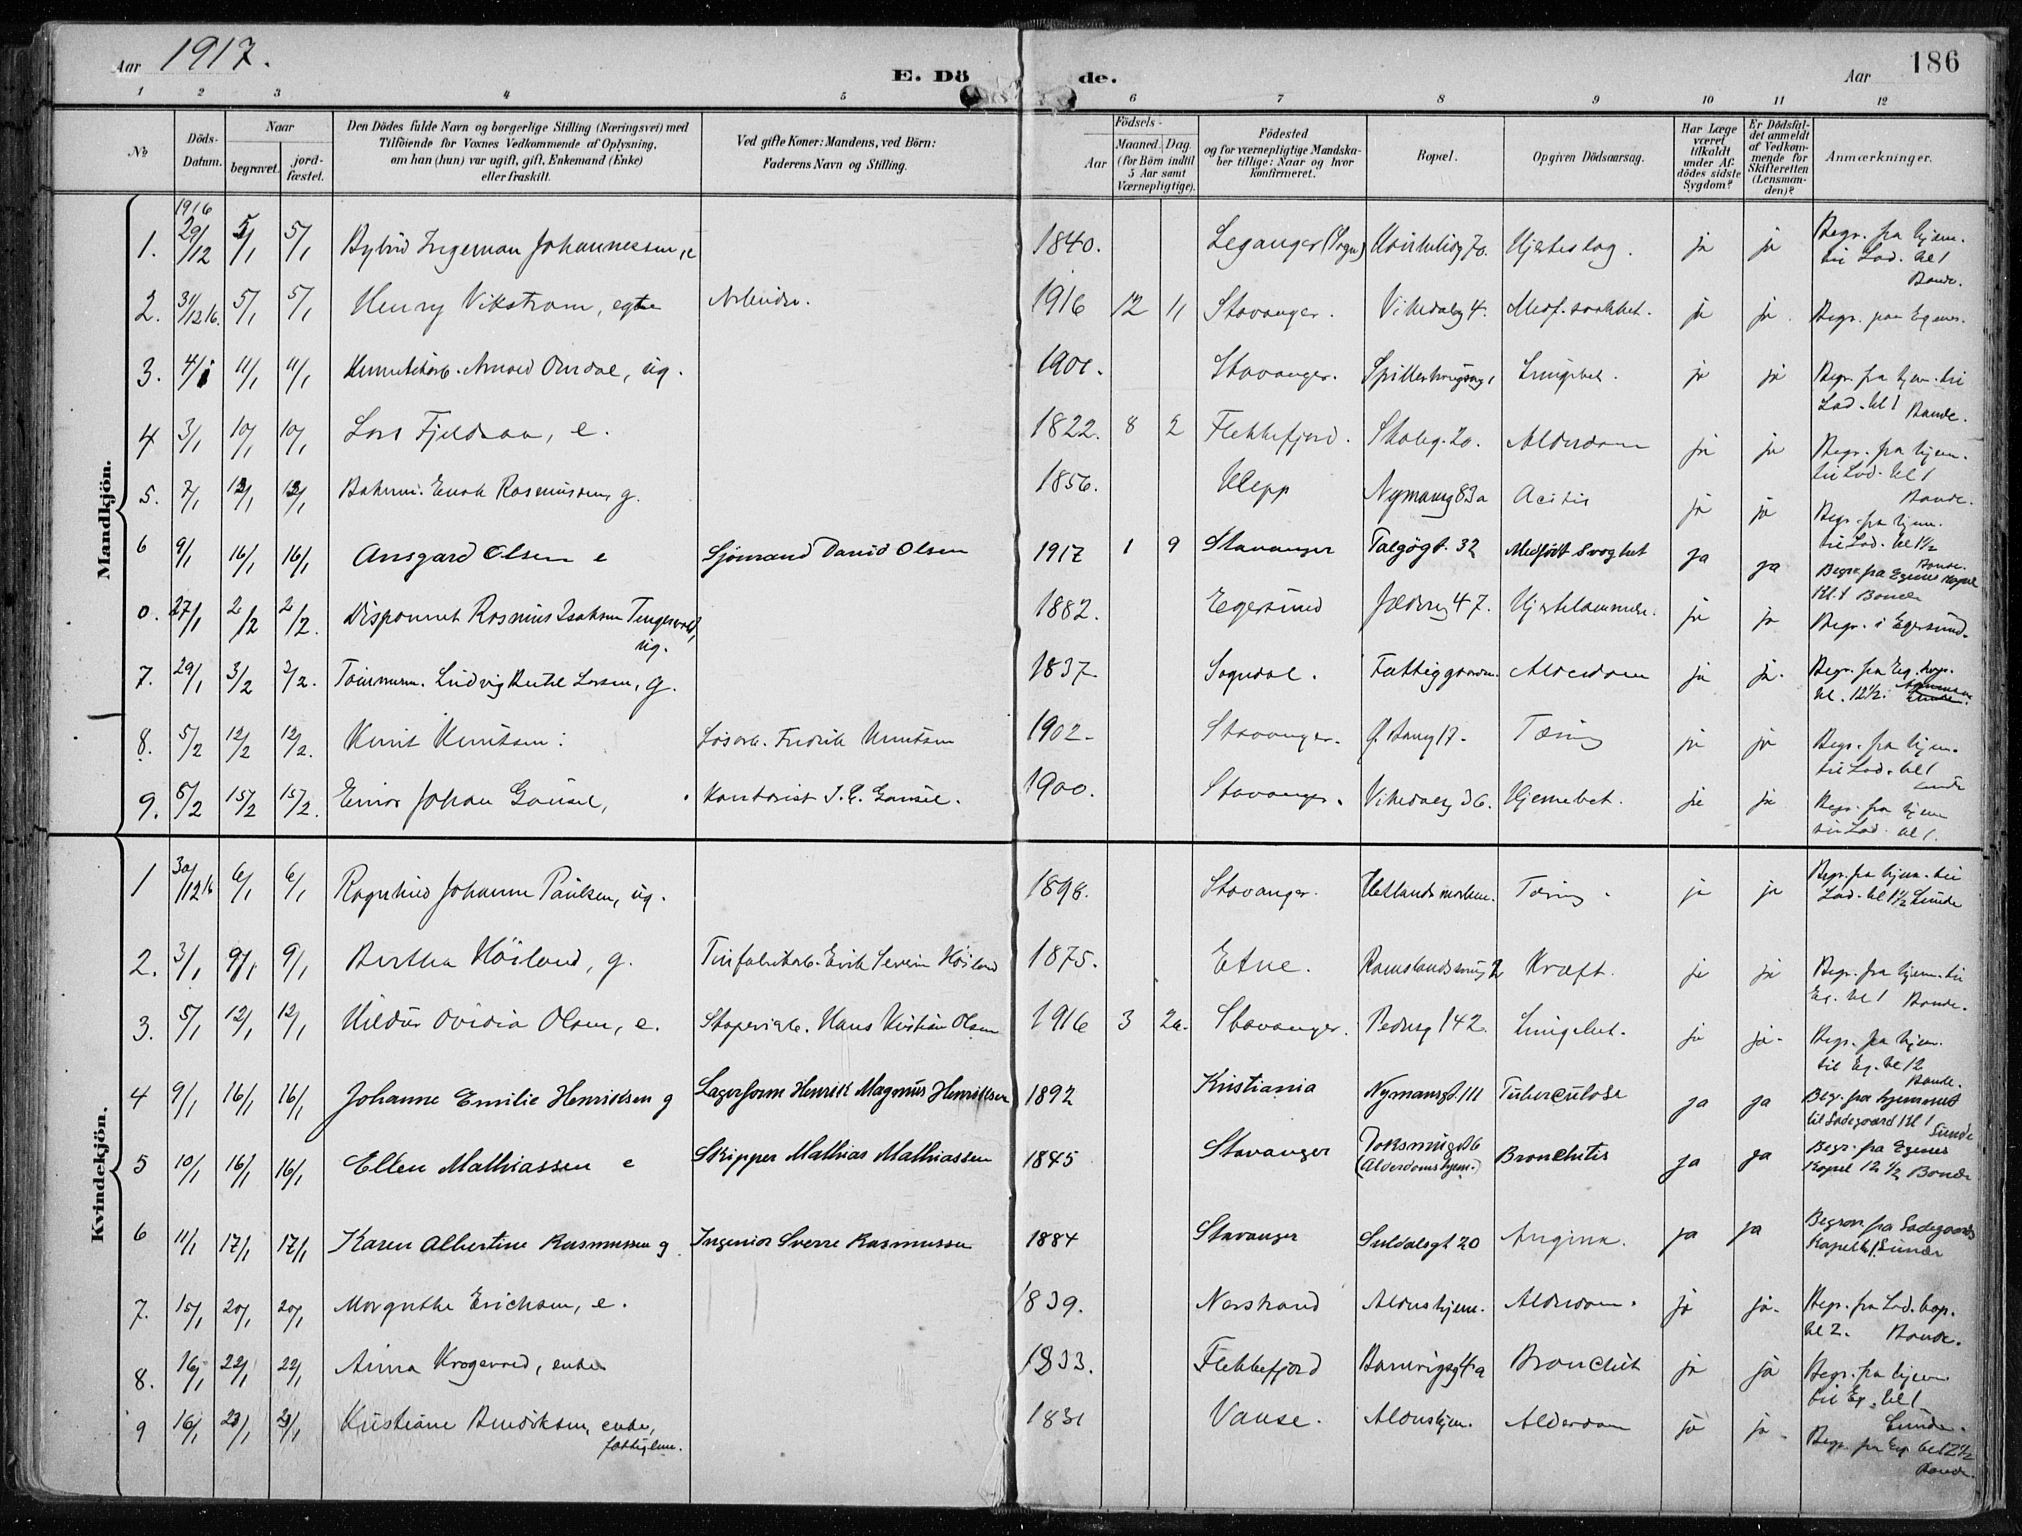 Aar 1917.
E. Dö de.
Aar
186
1 2 3 4 5 6 7 8 9 10 11 12
№
Döds-
Datum.
Naar
begravet.
jord-
fæstet.
Den Dödes fulde Navn og borgerlige Stilling (Næringsvei) med
Tilföiende for Voxnes Vedkommende af Oplysning,
om han (hun) var ugift, gift, Enkemand (Enke)
eller fraskilt.
Ved gifte Koner: Mandens, ved Börn:
Faderens Navn og Stilling.
Födsels-
Aar
Maaned. Dag.
(for Börn indtil
5 Aar samt
Værnepligtige).
Födested
og for værnepligtige Mandska-
ber tillige: Naar og hvor
konfirmeret.
Bopæl.
Opgiven Dödsaarsag.
Har Læge
været
tilkaldt
under Af-
dödes sidste
Sygdom?
Er Dödsfal-
det anmeldt
af Vedkom-
mende for
Skifteretten
(Lensman-
den)?
Anmærkninger.
Mandkjön.
1916
1. 29/12 5/1 5/1 Ingeman Johannessen, e 1840. Leganger (Sogn) Hjerteslag. ja ja Begr. fra hjem.
til Lad. kl 1
Bonde.
2. 31/12 16. 5/1 5/1 Henry Vikstrøm, egte Arbeider. 1916 12 11 Stavanger. Vikedalsg 4. Medf. svakhet. ja ja. Begr. paa Egenes.
3. 4/1 11/1 11/1 Arnold Omdal, ug. 1901. Stavanger. Lungebet. ja ja Begr. fra hjem. til
Lad. kl 1 Bonde.
4 3/1 10/1 10/1 Lars e. 1822. 8 2 Flekkefjord. Skoleg. 20. Alderdom ja ja Begr. fra hjem.
til Lad. kl 1
Bonde.
5. 7/1 12/1 12/1 Enok Rasmussen, g. 1856. Klepp Nymansg 83a ja ja Begr. fra hjem.
til Lad. kl 1½
Bonde.
6 9/1 16/1 16/1 Ansgard Olsen e Sjømand David Olsen 1917 1 9 Stavanger Talgøgt. 32 Medfødt Svaghet ja ja Begr. fra Egenes Kapel
Kl. 1 Bonde
0. 27/1 2/2 2/2. Disponent Rasmus Isaksen Tengesdal,
ug. 1882. Egersund Jelsag 47. Hjertelammelse. ja ja Begr. i Egersund.
7. 29/1 3/2 3/2. Tømmerm. Ludvig Larsen, g. 1837 Sogndal. Fattiggaarden Alderdom ja ja. Begr. fra Eg. kap.
kl. 12½.
8. 5/2 12/2 12/2. Knut Knutsen: Løsarb. Fredrik Knutsen 1902. Stavanger. Tæring ja ja Begr. fra hjem.
til Lad. kl 1
Lunde
9. 5/2 15/2 15/2. Einar Johan Gausel, Kontorist J. E. Gausel. 1900. Stavanger. Vikedalsg 36. Hjernebet. ja ja Begr. fra hjem
til Lad. kl 1.
Kvindekjön.
1 30/12 16 6/1 6/1 Ragnhild Johanne Paulsen, ug. 1898. Stavanger. Hetlandsmarken. Tæring. ja ja Begr. fra hjem. til
Lad. kl 1½ Lunde
2. 3/1 9/1 9/1 Bertha Høiland, g. Tinfabrikarb. Erik Severin Høiland 1875. Etne. Ramslandsveien 2 Kræft. ja ja Begr. fra hjem. til
Eg. kl 1 Bonde.
3. 5/1 12/1 12/1 Hildur Ovidia Olsen, e. Støperiarb. Hans Kristian Olsen 1916 3 20. Stavanger. Pedersg 142. Lungebet. ja ja. Begr. fra hjem.
til Eg. kl 12
Bonde.
4 9/1 16/1 16/1 Johanne Emilie Henriksen g Lagerform Henrik Magnus Henriksen 1892 Kristiania Nymansgt. 111 Tuberculose ja ja Begr. fra hjemmet
til Ladegaard Kl 1
Lunde
5 10/1 16/1 16/1 Ellen Mathiassen e Skipper Mathias Mathiassen 1845 Stavanger
(Alderdomshjem.) Bronchitis ja ja Begr. fra Egenes
Kapel 12½ Bonde
6 11/1 17/1 17/1 Karen Albertine Rasmussen g. Ingeniør Sverre Rasmussen 1884 Stavanger Suldalsgt 20 Angina. ja ja Begrav. fra Ladegaards
Kapel kl 1 Lunde
7. 15/1 20/1 20/1 Margrethe Erichsen, e. 1839. Nerstrand Aldershjem. Alderdom. ja ja. Begr. fra Lad. kap.
kl 2. Bonde.
8. 16/1 22/1 22/1 Anna enke 1833. Flekkefjord Bronchit ja ja Begr. fra hjem
til Eg. kl 1
Lunde.
9 16/1 23/1 23/1 Kristiane enke,
fattiglem. 1831 Vanse. Aldershjem. Alderdom ja ja. Begr. fra Eg. kl 12½
Bonde.